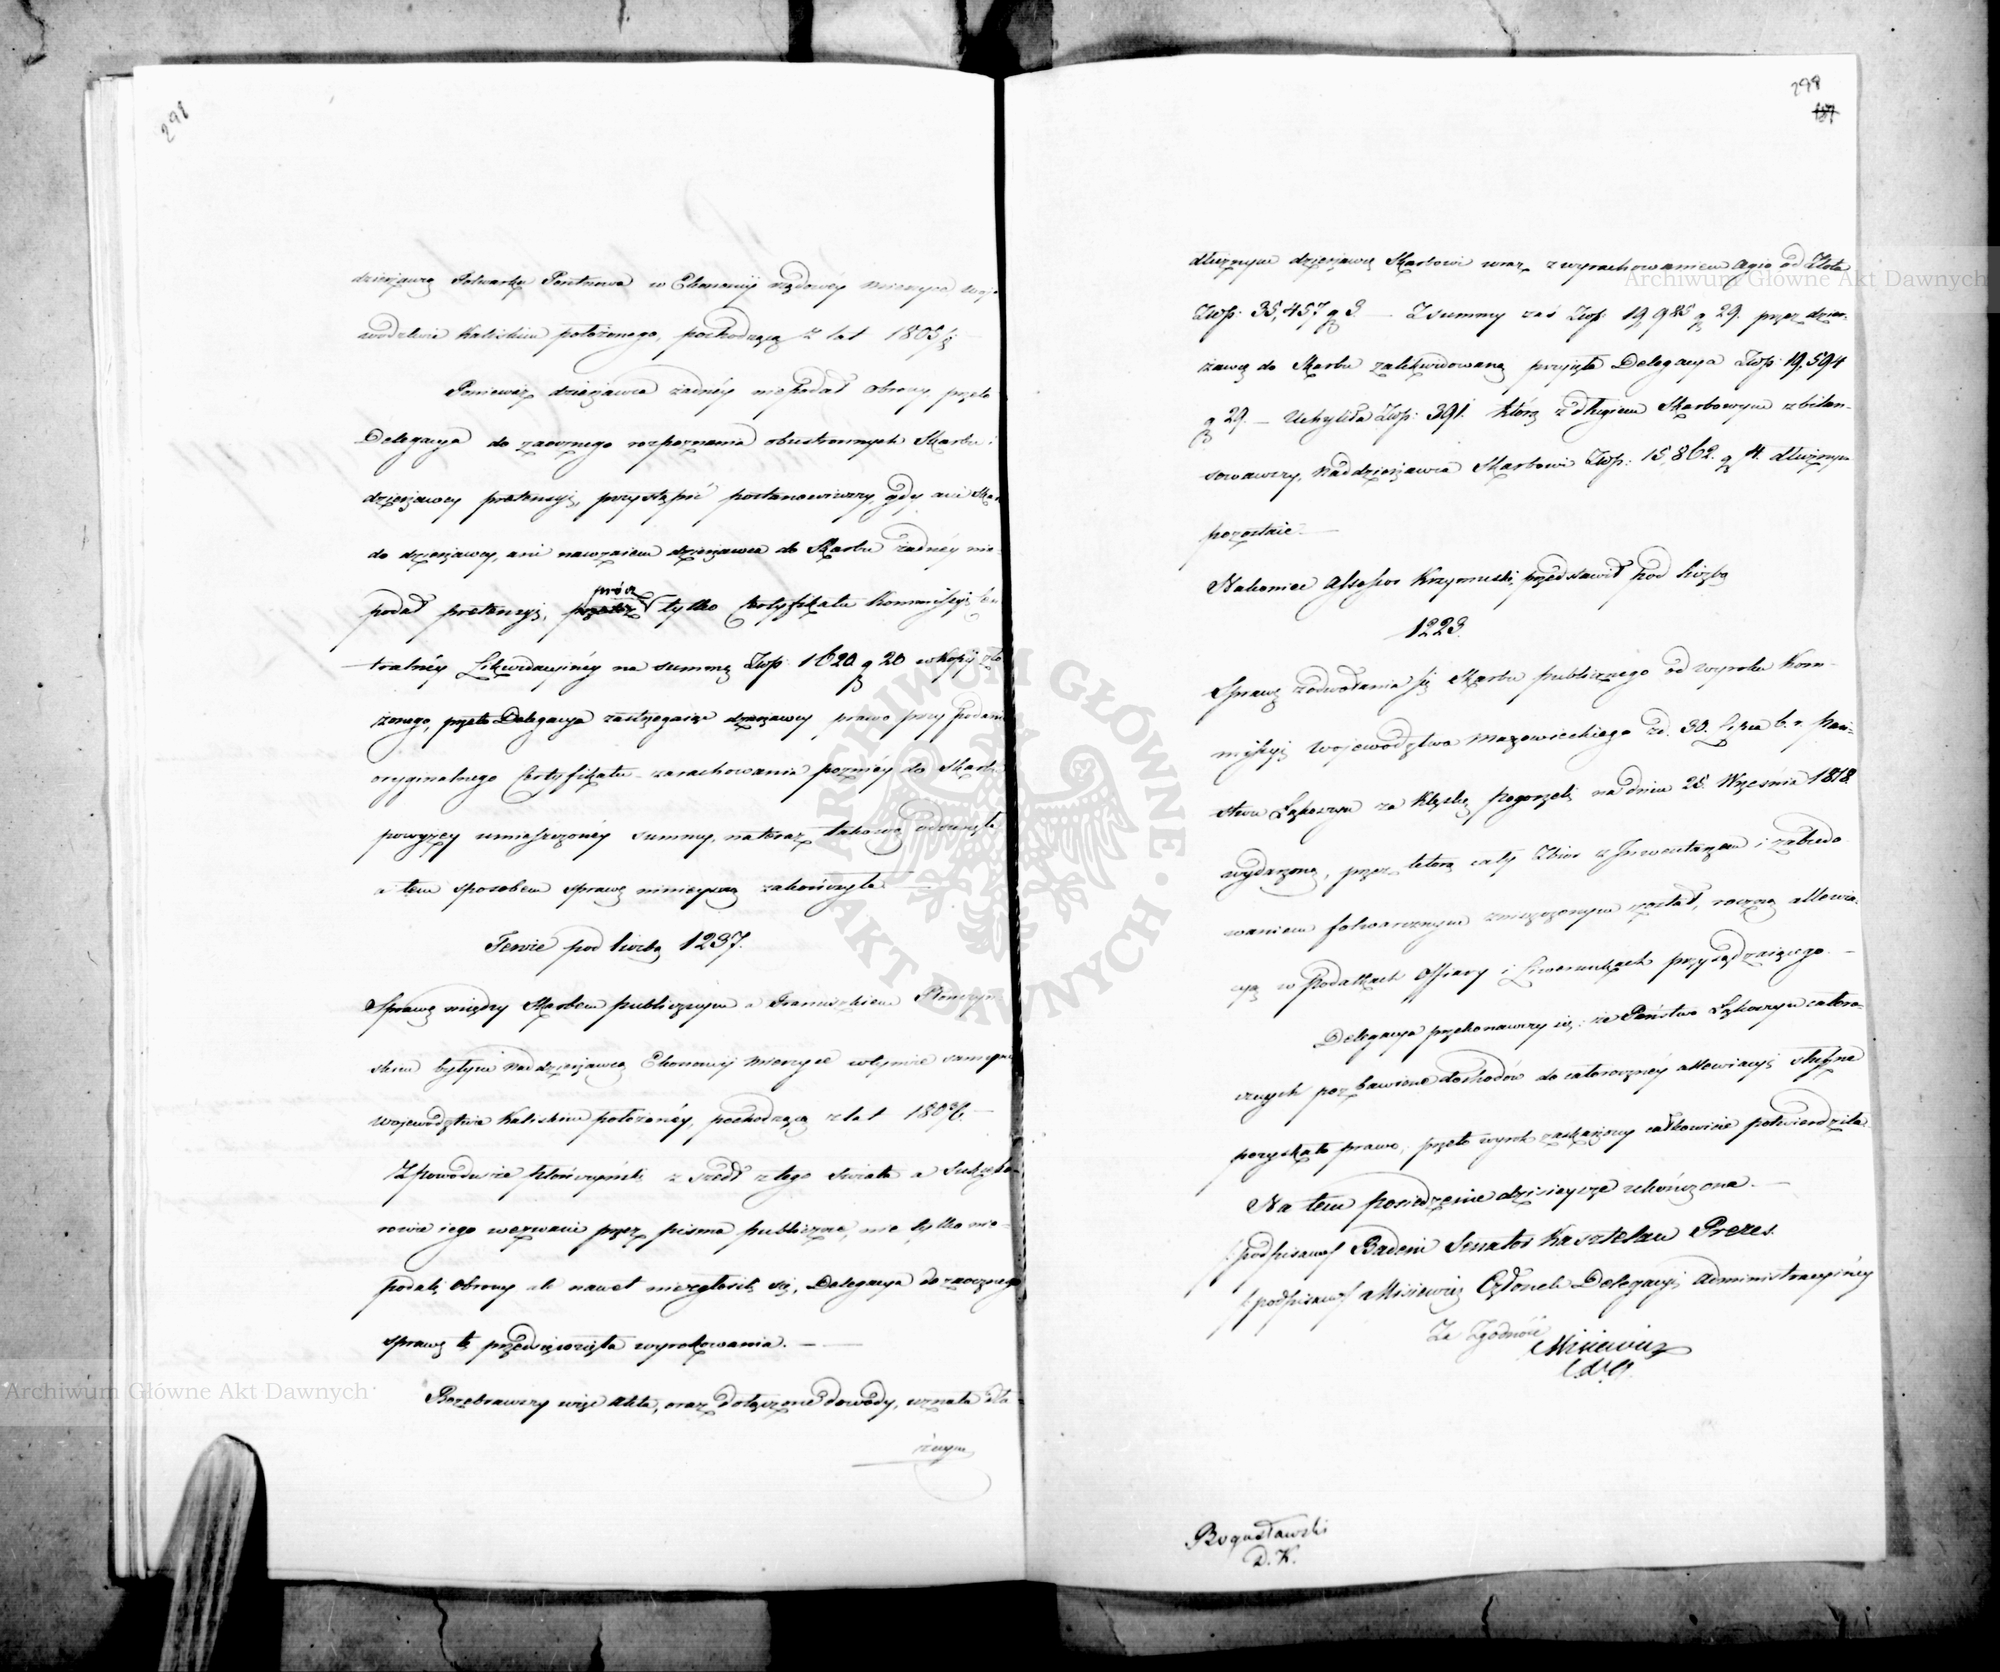 298
dzierżawcą Folwarku Pontnowa w Ekonomij rządowéy Mierzyce Woje
wodztwie Kaliskim położonego, pochodzącą z lat 1805/6
Ponieważ dzierżawca żadnéy niepodał obrony, przeto
Delegacya do zaocznego rozpoznania obustronnych Skarbu i
dzierżawcy pretensyi, przystąpić postanowiwszy, gdy ani Skar
do dzierżawcy, ani nawzaiem dzierżawca do Skarbu żadnéy nie
podał pretensyi, prócz tylko Certyfikatu Kommissyi Cen
tralnéy Likwidacyinéy na summę Złwp: 1620 g 20 w Kopij zło
żonego, przeto Delegacya zastrzegaiąc dzierżawcy prawo przy podaniu
oryginalnego Certyfikatu zarachowania pozniéy do Skarbu
powyzey umieszczonéy summy, nateraz takową odsunęła
a tem sposobem sprawę ninieyszą zakończyła
Tenże pod liczbą 1237.
Sprawę między Skarbem publicznym a Franciszkiem Kłonczyń
skim byłym Naddzierżawcą Ekonomij Mierzyce w tymże samym
Województwie Kaliskim położonéy, pochodzącą z lat 180
Z powodu że Kłończyński zszedł z tego Świata a Sukcesso
rowie iego wezwani przez pisma publiczne, nie tylko nie
podali obrony ale nawet niezgłosili się, Delegacya do zaocznego
sprawę tę przedsięwzięła wyrokowania.
Rozebrawszy więc Akta, oraz dołączone dowody, uznała dłu
żnym
298
dłużnym dzierżawcę Skarbowi wraz z wyrachowaniem Agio od Złota
Złwp: 35,457 g 3. — Z summy zaś Złwp: 19,985 g 29. przez dzier-
żawcę do Skarbu zalikwidowanéy przyięła Delegacya Złwp: 19,594
g 29. — Uchyliła Złwp: 391. którą z długiem Skarbowym zbilan-
sowawszy, Naddzierżawca Skarbowi Złwp: 15,862. g 4. dłużnym
pozostaie.
Nakoniec Assessor Krzymuski, przedstawił pod liczbą
1223.
Sprawę z odwołania się Skarbu publicznego od wyroku Kom-
missyi Województwa Mazowieckiego zd. 30. Lipca b. r. Pań-
stwu Łąkoszyn za Klęskę pogorzeli na dniu 28. Września 1818
wydarzoną, przez którą cały Zbior z Inwentarzem i zabudo
waniem folwarcznym zniszczonym został, roczną allewia
cyą w Podatkach Ofiary i Liwerunkach przysądzaiącego.
Delegacya przekonawszy się, że Państwo Łąkoszyn całoro-
cznych pozbawione dochodów do całorocznéy allewiacyi słuszne
pozyskało prawo, przeto wyrok zaskarżony całkowicie potwierdziła.
Na tem posiedzenie dzisieysze ukończone.
/podpisano/ Badeni Senator Kasztelan Prezes.
/podpisano/ Misiewicz Członek Delegacyi Administracyinéy
Za Zgodność
Misiewicz
Bogusławski
D. K.
Archiwum Główne Akt Dawnych
Archiwum Główne Akt Dawnych
ARCHIWUM GŁÓWNE · AKT DAWNYCH ·